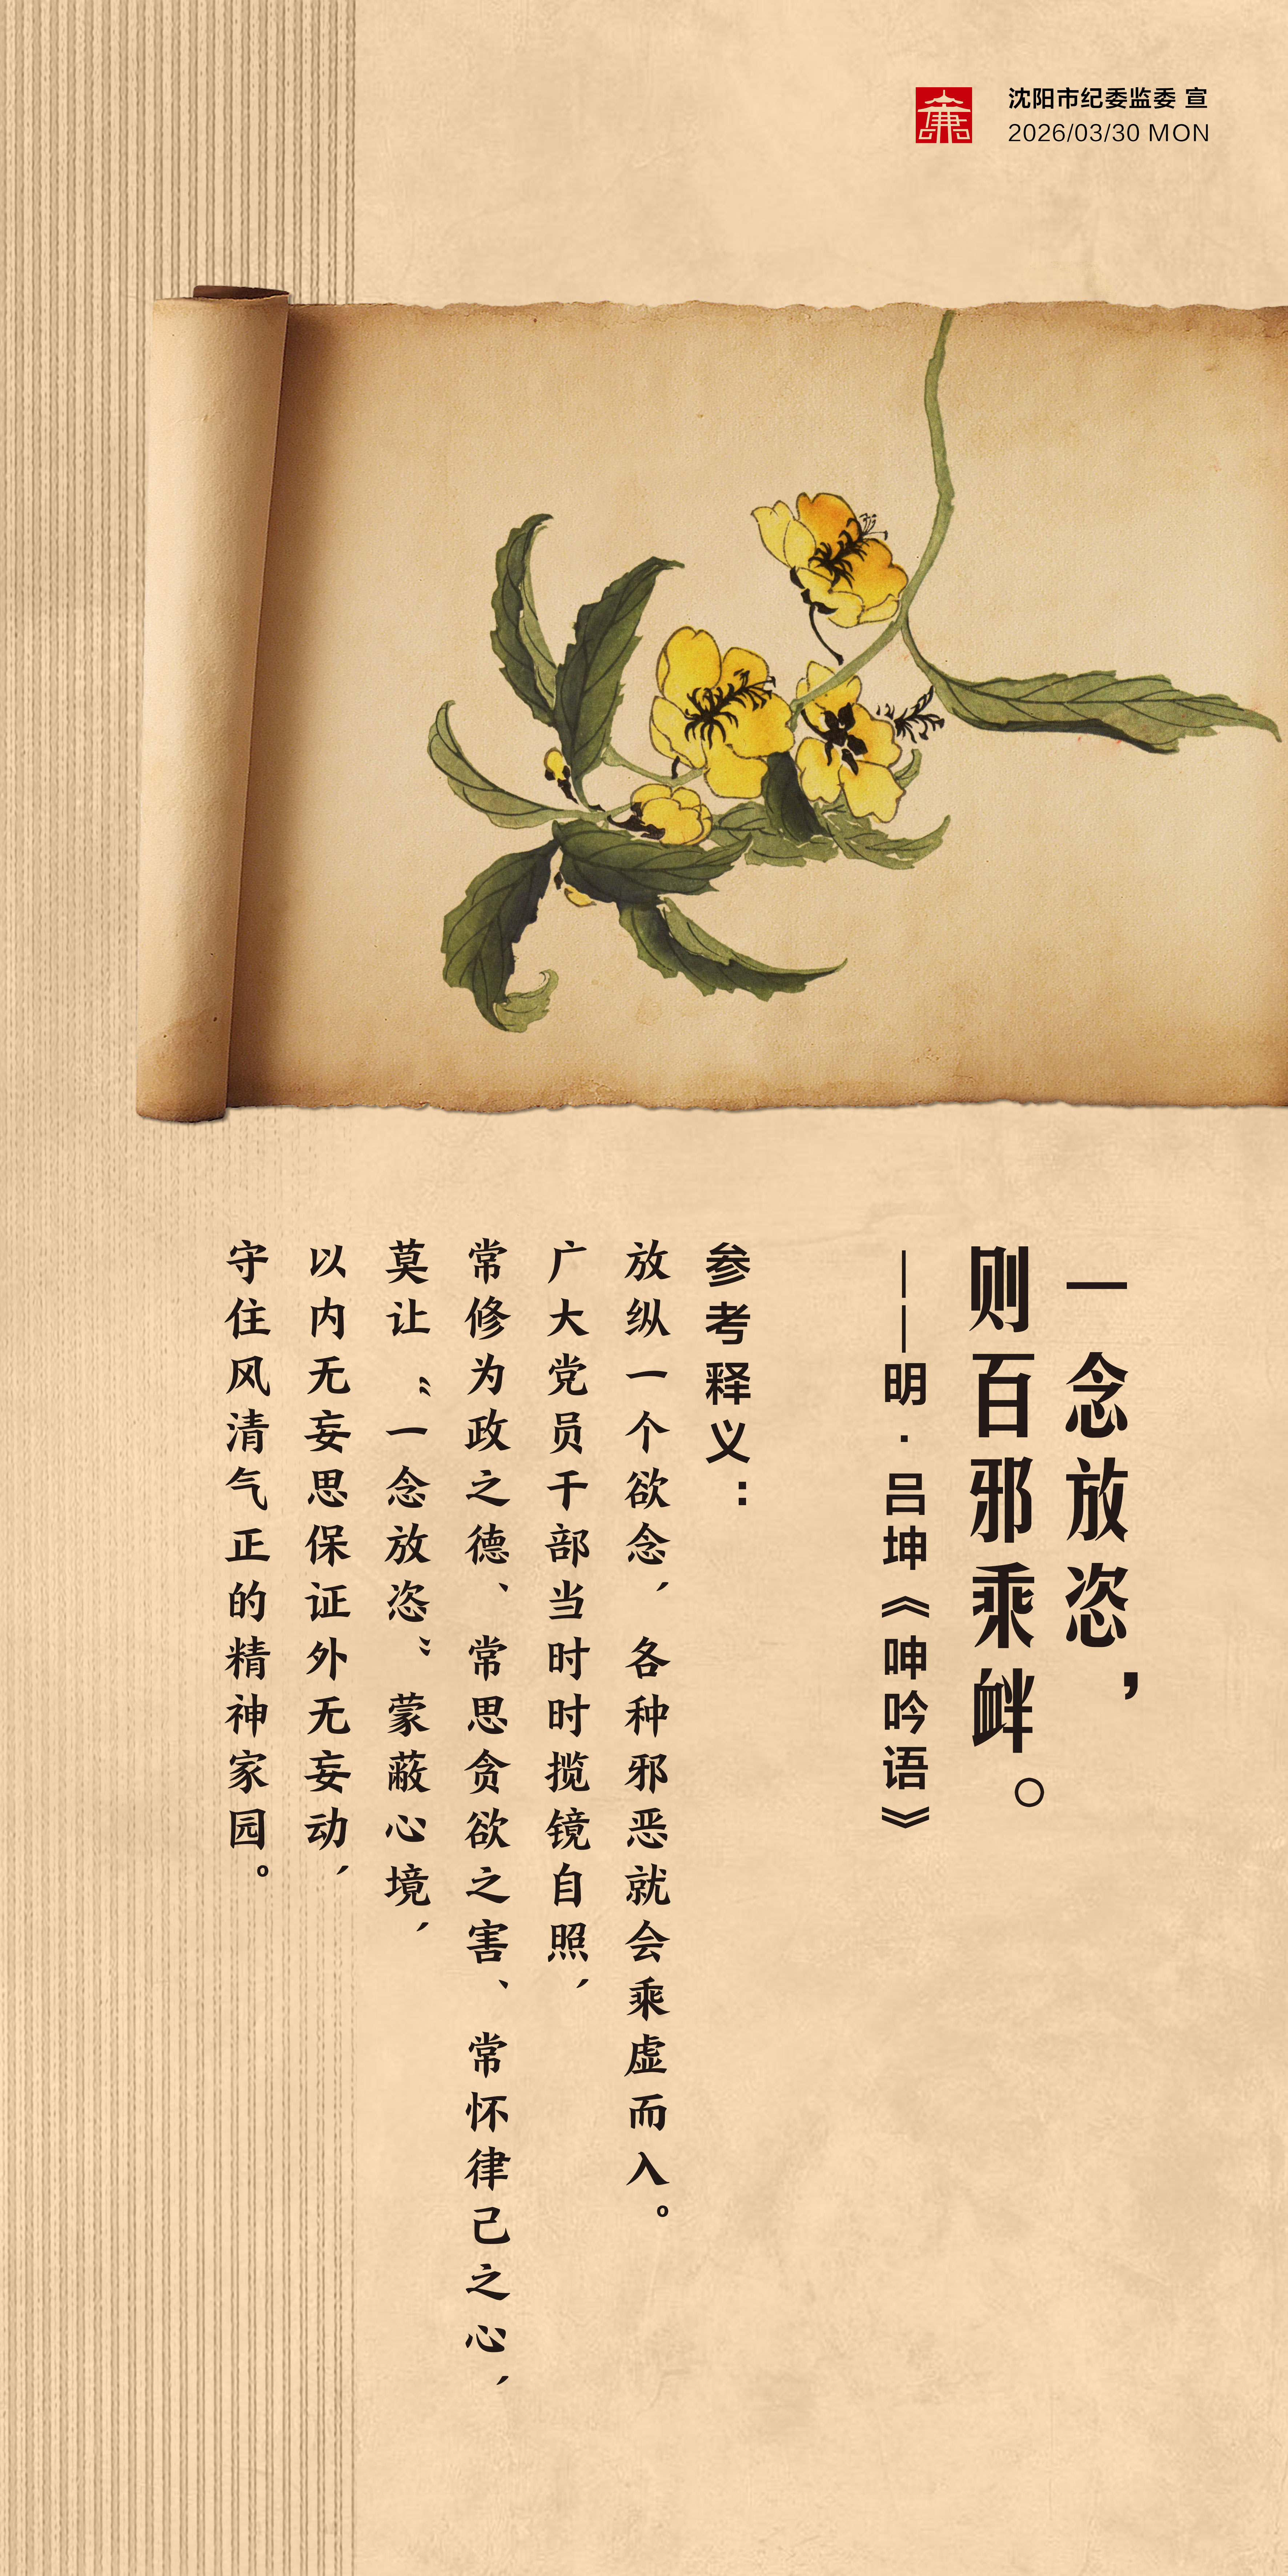 沈阳市纪委监委 宣
2026/03/30 MON
一念放恣，
则百邪乘衅。
——明·吕坤《呻吟语》
参考释义：
放纵一个欲念，各种邪恶就会乘虚而入。
广大党员干部当时时揽镜自照，
常修为政之德、常思贪欲之害、常怀律己之心，
莫让“一念放恣”蒙蔽心境，
以内无妄思保证外无妄动，
守住风清气正的精神家园。